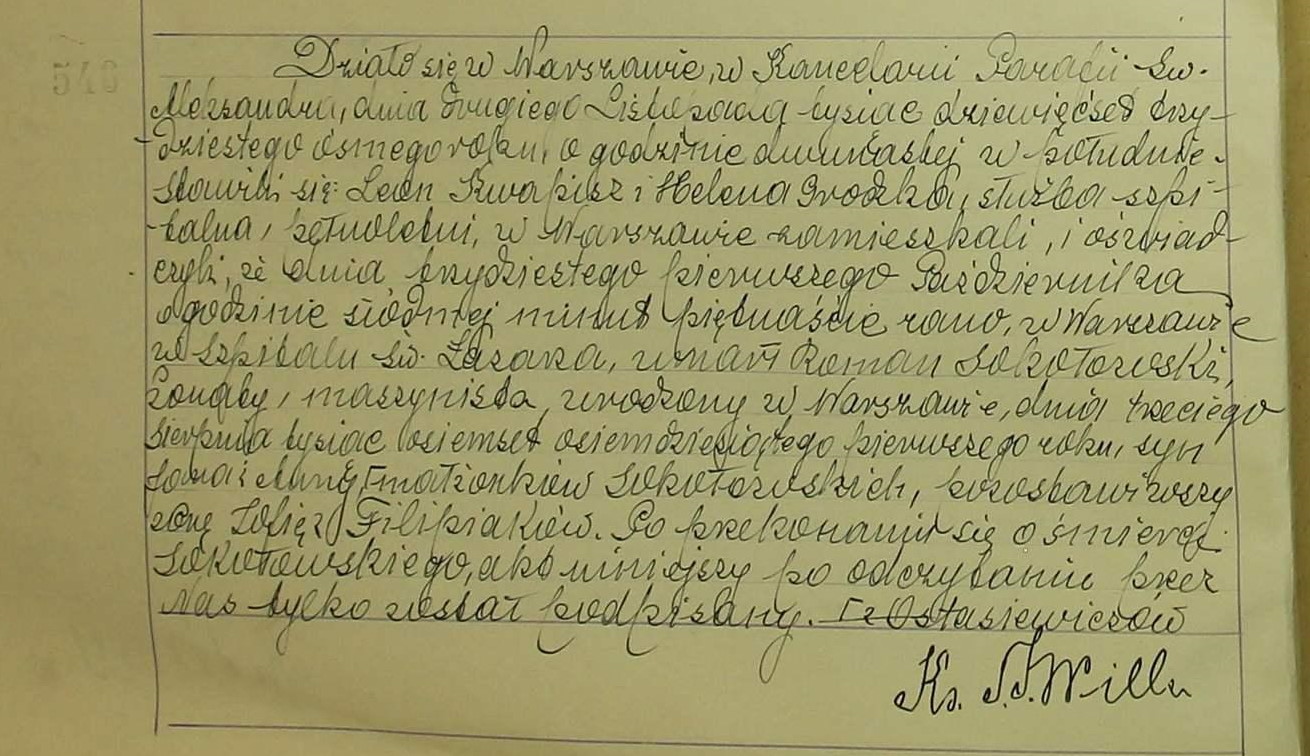 540
Działo się w Warszawie, w Kancelarii Parafii św.
Aleksandra, dnia drugiego Listopada tysiąc dziewięćset trzy-
dziestego ósmego roku, o godzinie dwunastej w południe.
Stawili się: Leon Kwapisz i Helena Grodzka, służba szpi-
talna, pełnoletni, w Warszawie zamieszkali, i oświad-
czyli, że dnia trzydziestego pierwszego Października
o godzinie siódmej minut piętnaście rano, w Warszawie
w szpitalu św. Łazarza, umarł Roman Sokołowski,
żonaty, maszynista, urodzony w Warszawie, dnia trzeciego
Sierpnia tysiąc osiemset osiemdziesiątego pierwszego roku, syn
Jana i Anny ┌ małżonków Sokołowskich, pozostawiwszy
żonę Zofię z Filipiaków. Po przekonaniu się o śmierci
Sokołowskiego, akt niniejszy po odczytaniu przez
Nas tylko został podpisany. ┌ z Ostasiewiczów
Ks. Will